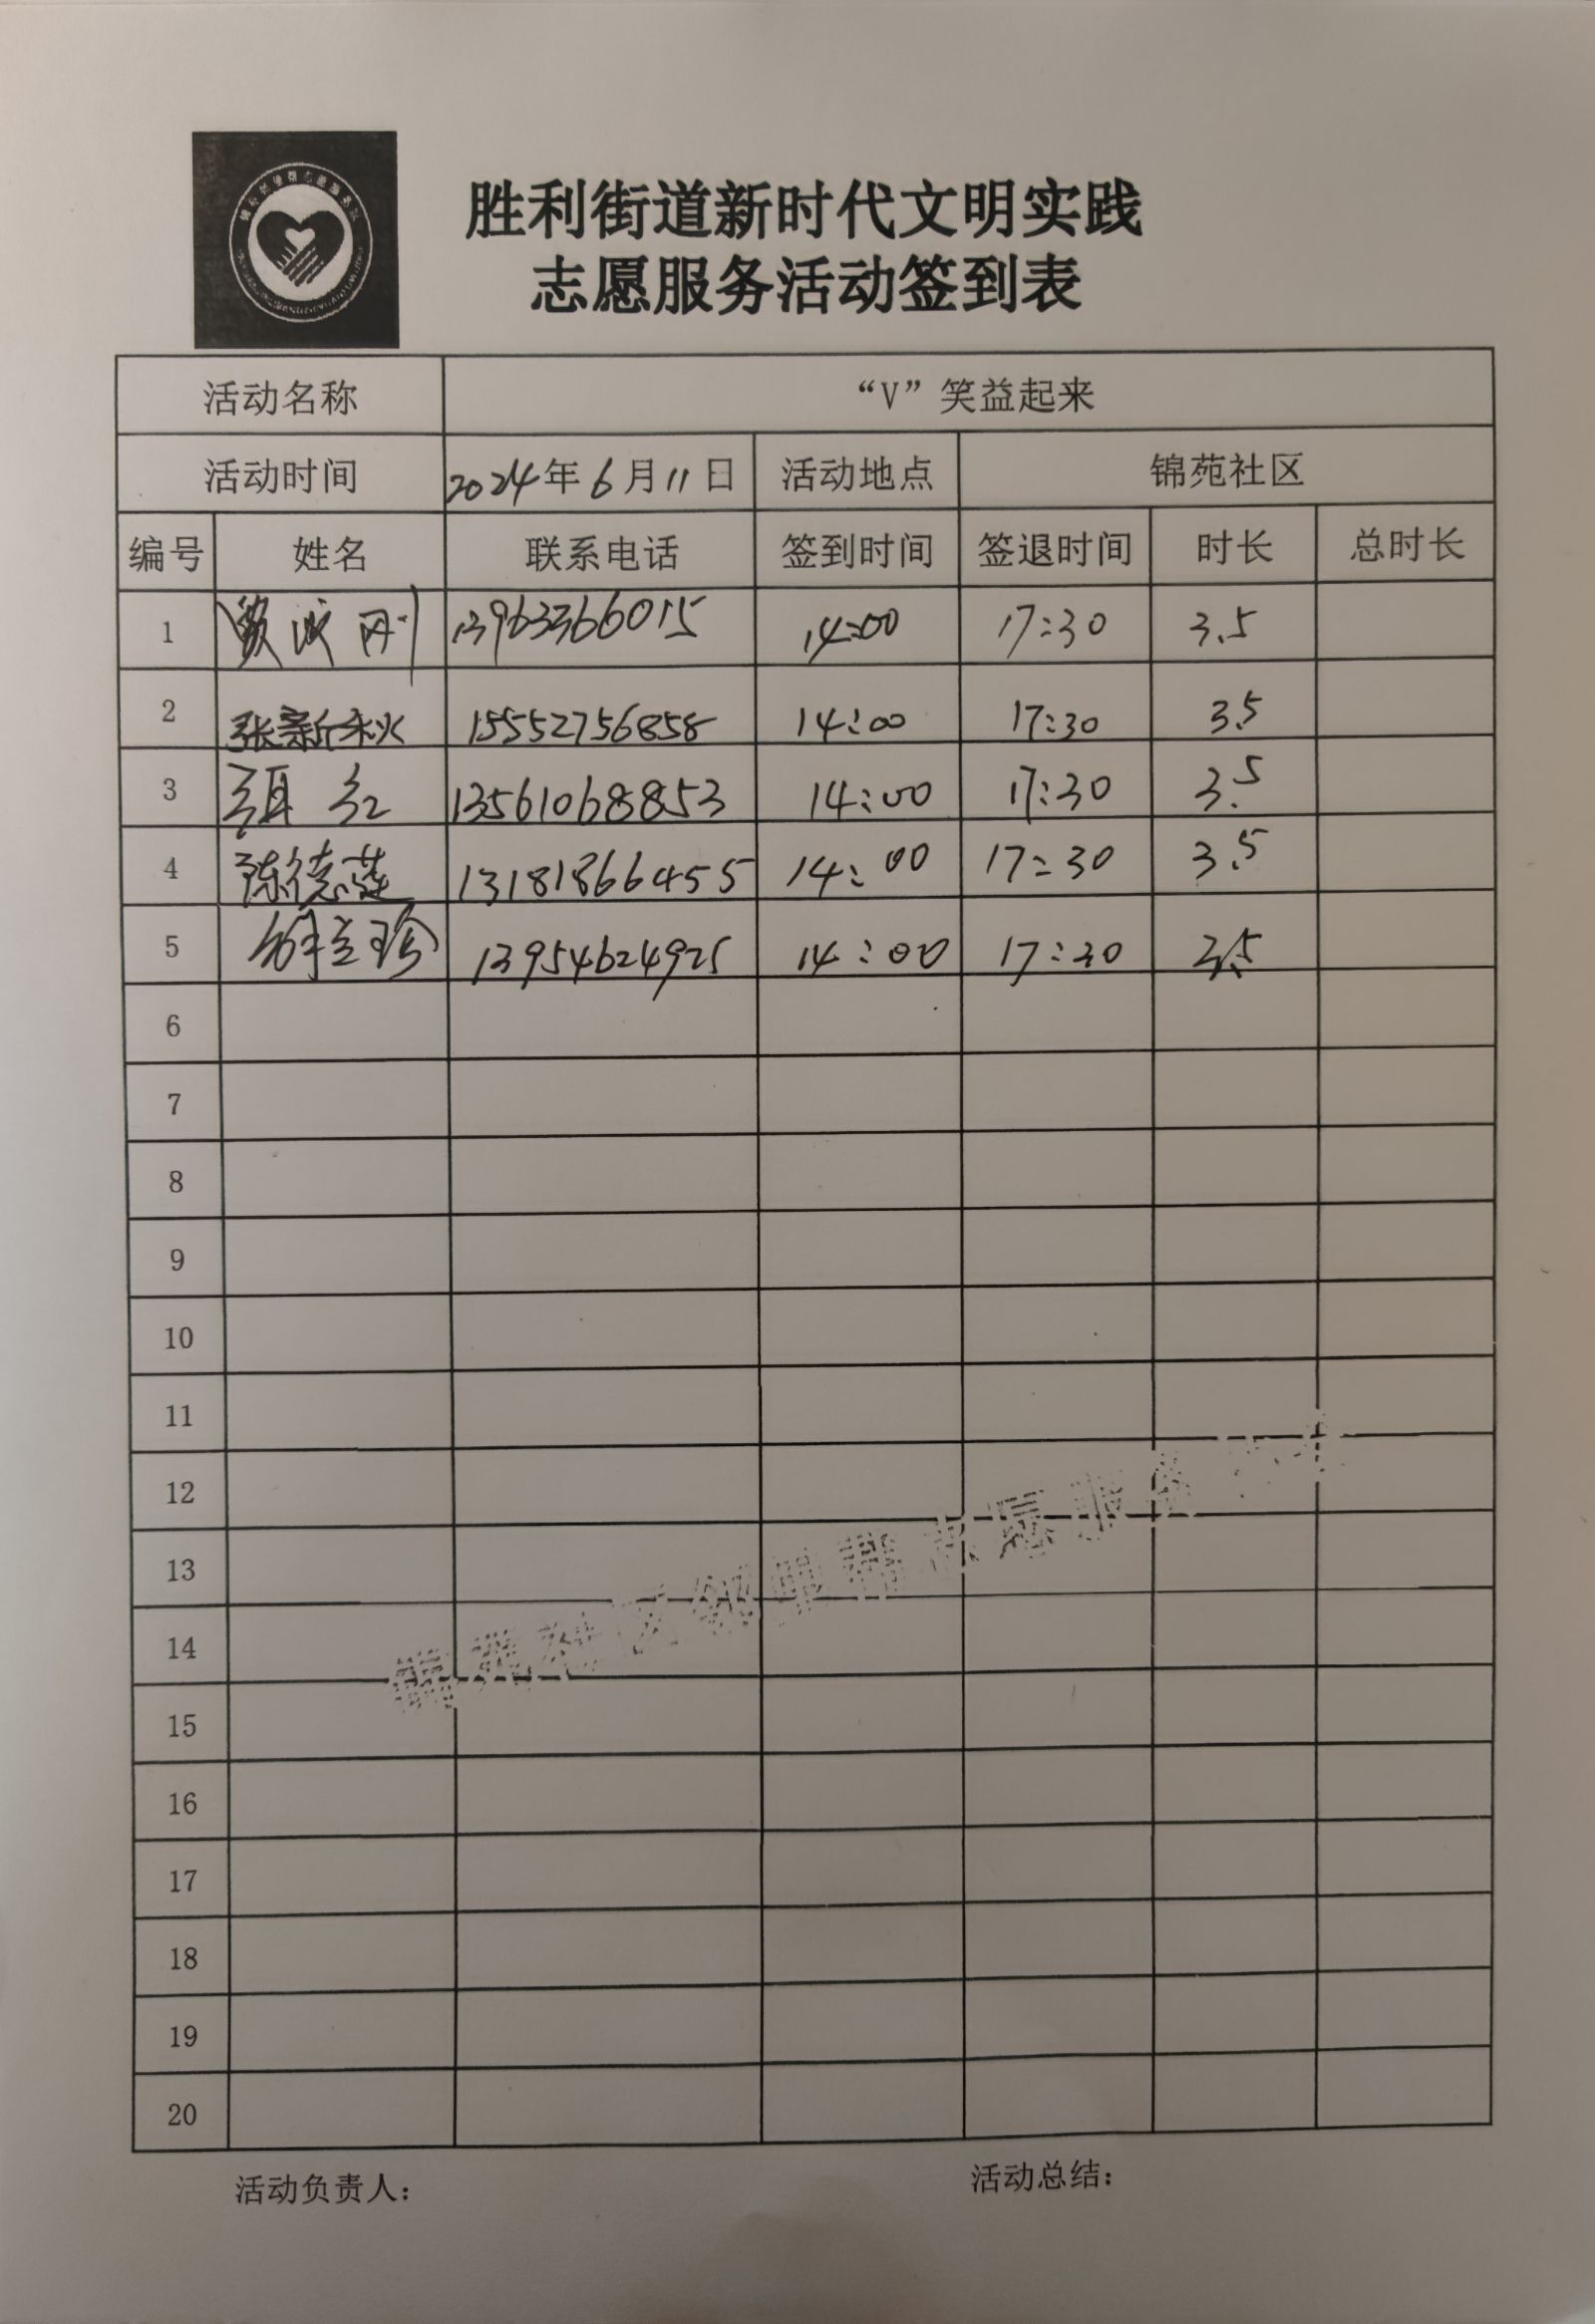 胜利街道新时代文明实践
志愿服务活动签到表
活动名称 “V”笑益起来
活动时间 2024年6月11日 活动地点 锦苑社区
编号 姓名 联系电话 签到时间 签退时间 时长 总时长
1 刚 13963366015 14:00 17:30 3.5
2 张新秋 15552756858 14:00 17:30 3.5
3 红 13561068853 14:00 17:30 3.5
4 陈德莲 13181866455 14:00 17:30 3.5
5 徐兰珍 13954624925 14:00 17:30 3.5
6
7
8
9
10
11
12
13
14
15
16
17
18
19
20
锦苑社区邻里帮志愿服务
活动负责人： 活动总结：